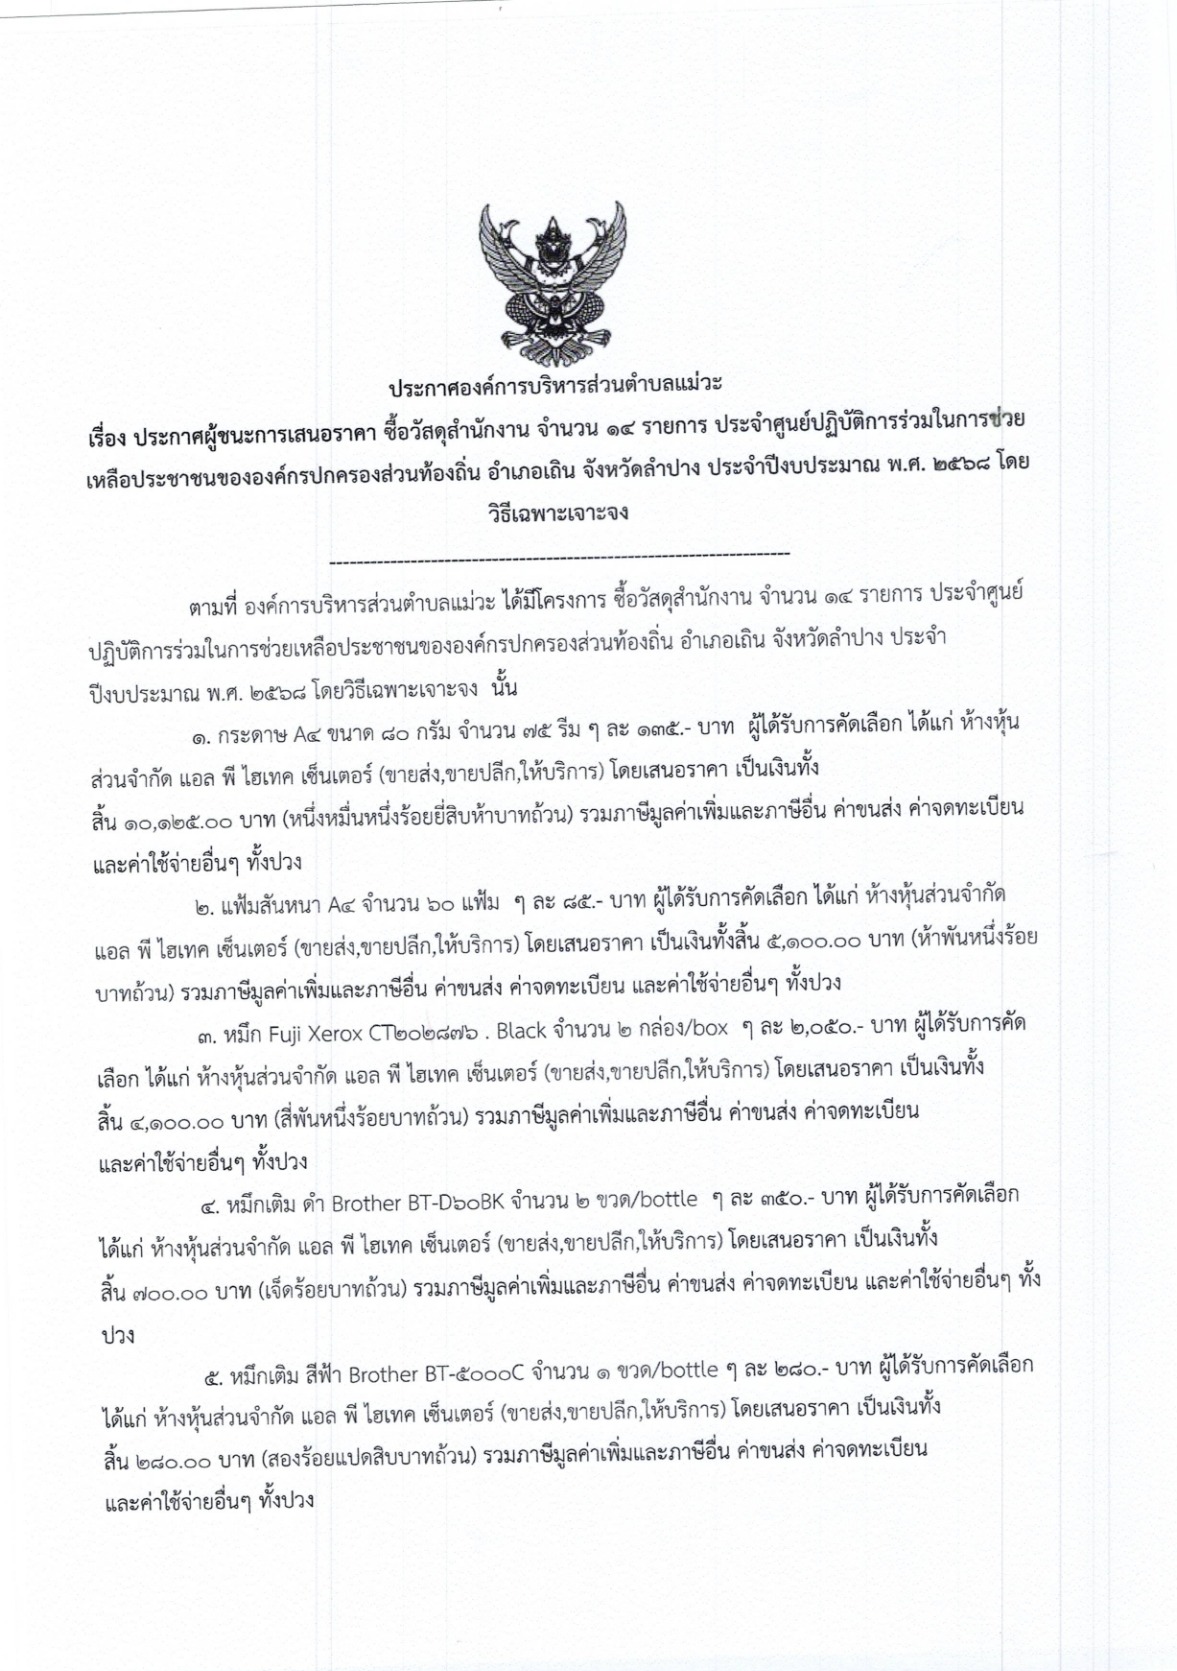 ประกาศองค์การบริหารส่วนตำบลแม่วะ
เรื่อง ประกาศผู้ชนะการเสนอราคา ซื้อวัสดุสำนักงาน จำนวน ๑๔ รายการ ประจำศูนย์ปฏิบัติการร่วมในการช่วย
เหลือประชาชนขององค์กรปกครองส่วนท้องถิ่น อำเภอเถิน จังหวัดลำปาง ประจำปีงบประมาณ พ.ศ. ๒๕๖๘ โดย
วิธีเฉพาะเจาะจง
--------------------------------------------------------------------
ตามที่ องค์การบริหารส่วนตำบลแม่วะ ได้มีโครงการ ซื้อวัสดุสำนักงาน จำนวน ๑๔ รายการ ประจำศูนย์
ปฏิบัติการร่วมในการช่วยเหลือประชาชนขององค์กรปกครองส่วนท้องถิ่น อำเภอเถิน จังหวัดลำปาง ประจำ
ปีงบประมาณ พ.ศ. ๒๕๖๘ โดยวิธีเฉพาะเจาะจง นั้น
๑. กระดาษ A๔ ขนาด ๘๐ กรัม จำนวน ๗๕ รีม ๆ ละ ๑๓๕.- บาท ผู้ได้รับการคัดเลือก ได้แก่ ห้างหุ้น
ส่วนจำกัด แอล พี ไฮเทค เซ็นเตอร์ (ขายส่ง,ขายปลีก,ให้บริการ) โดยเสนอราคา เป็นเงินทั้ง
สิ้น ๑๐,๑๒๕.๐๐ บาท (หนึ่งหมื่นหนึ่งร้อยยี่สิบห้าบาทถ้วน) รวมภาษีมูลค่าเพิ่มและภาษีอื่น ค่าขนส่ง ค่าจดทะเบียน
และค่าใช้จ่ายอื่นๆ ทั้งปวง
๒. แฟ้มสันหนา A๔ จำนวน ๖๐ แฟ้ม ๆ ละ ๘๕.- บาท ผู้ได้รับการคัดเลือก ได้แก่ ห้างหุ้นส่วนจำกัด
แอล พี ไฮเทค เซ็นเตอร์ (ขายส่ง,ขายปลีก,ให้บริการ) โดยเสนอราคา เป็นเงินทั้งสิ้น ๕,๑๐๐.๐๐ บาท (ห้าพันหนึ่งร้อย
บาทถ้วน) รวมภาษีมูลค่าเพิ่มและภาษีอื่น ค่าขนส่ง ค่าจดทะเบียน และค่าใช้จ่ายอื่นๆ ทั้งปวง
๓. หมึก Fuji Xerox CT๒๐๒๘๗๖ . Black จำนวน ๒ กล่อง/box ๆ ละ ๒,๐๕๐.- บาท ผู้ได้รับการคัด
เลือก ได้แก่ ห้างหุ้นส่วนจำกัด แอล พี ไฮเทค เซ็นเตอร์ (ขายส่ง,ขายปลีก,ให้บริการ) โดยเสนอราคา เป็นเงินทั้ง
สิ้น ๔,๑๐๐.๐๐ บาท (สี่พันหนึ่งร้อยบาทถ้วน) รวมภาษีมูลค่าเพิ่มและภาษีอื่น ค่าขนส่ง ค่าจดทะเบียน
และค่าใช้จ่ายอื่นๆ ทั้งปวง
๔. หมึกเติม ดำ Brother BT-D๖๐BK จำนวน ๒ ขวด/bottle ๆ ละ ๓๕๐.- บาท ผู้ได้รับการคัดเลือก
ได้แก่ ห้างหุ้นส่วนจำกัด แอล พี ไฮเทค เซ็นเตอร์ (ขายส่ง,ขายปลีก,ให้บริการ) โดยเสนอราคา เป็นเงินทั้ง
สิ้น ๗๐๐.๐๐ บาท (เจ็ดร้อยบาทถ้วน) รวมภาษีมูลค่าเพิ่มและภาษีอื่น ค่าขนส่ง ค่าจดทะเบียน และค่าใช้จ่ายอื่นๆ ทั้ง
ปวง
๕. หมึกเติม สีฟ้า Brother BT-๕๐๐๐C จำนวน ๑ ขวด/bottle ๆ ละ ๒๘๐.- บาท ผู้ได้รับการคัดเลือก
ได้แก่ ห้างหุ้นส่วนจำกัด แอล พี ไฮเทค เซ็นเตอร์ (ขายส่ง,ขายปลีก,ให้บริการ) โดยเสนอราคา เป็นเงินทั้ง
สิ้น ๒๘๐.๐๐ บาท (สองร้อยแปดสิบบาทถ้วน) รวมภาษีมูลค่าเพิ่มและภาษีอื่น ค่าขนส่ง ค่าจดทะเบียน
และค่าใช้จ่ายอื่นๆ ทั้งปวง